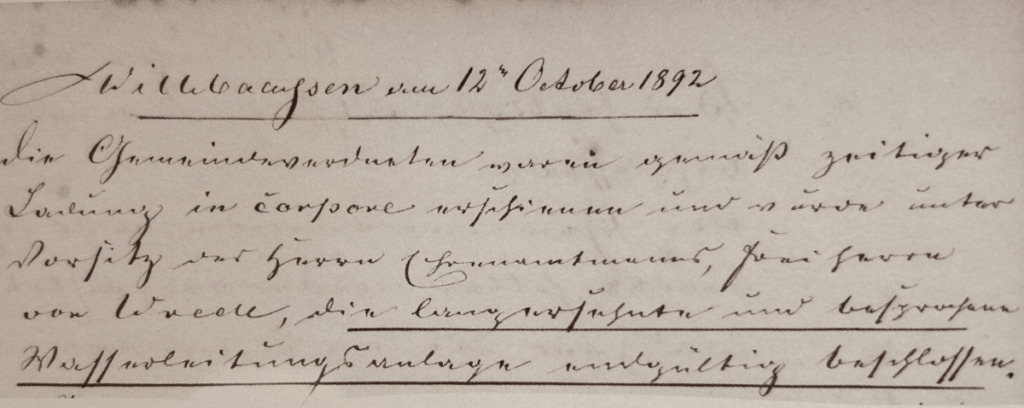 Willebadessen am 12ᵗ October 1892
die Gemeindeverordneten waren gemäß zeitiger
Ladung in corpore erschienen und wurde unter
Vorsitz des Herrn Ehrenamtmanns, Freiherrn
von Wrede, die langersehnte und besprochene
Wasserleitungsanlage endgültig beschlossen.